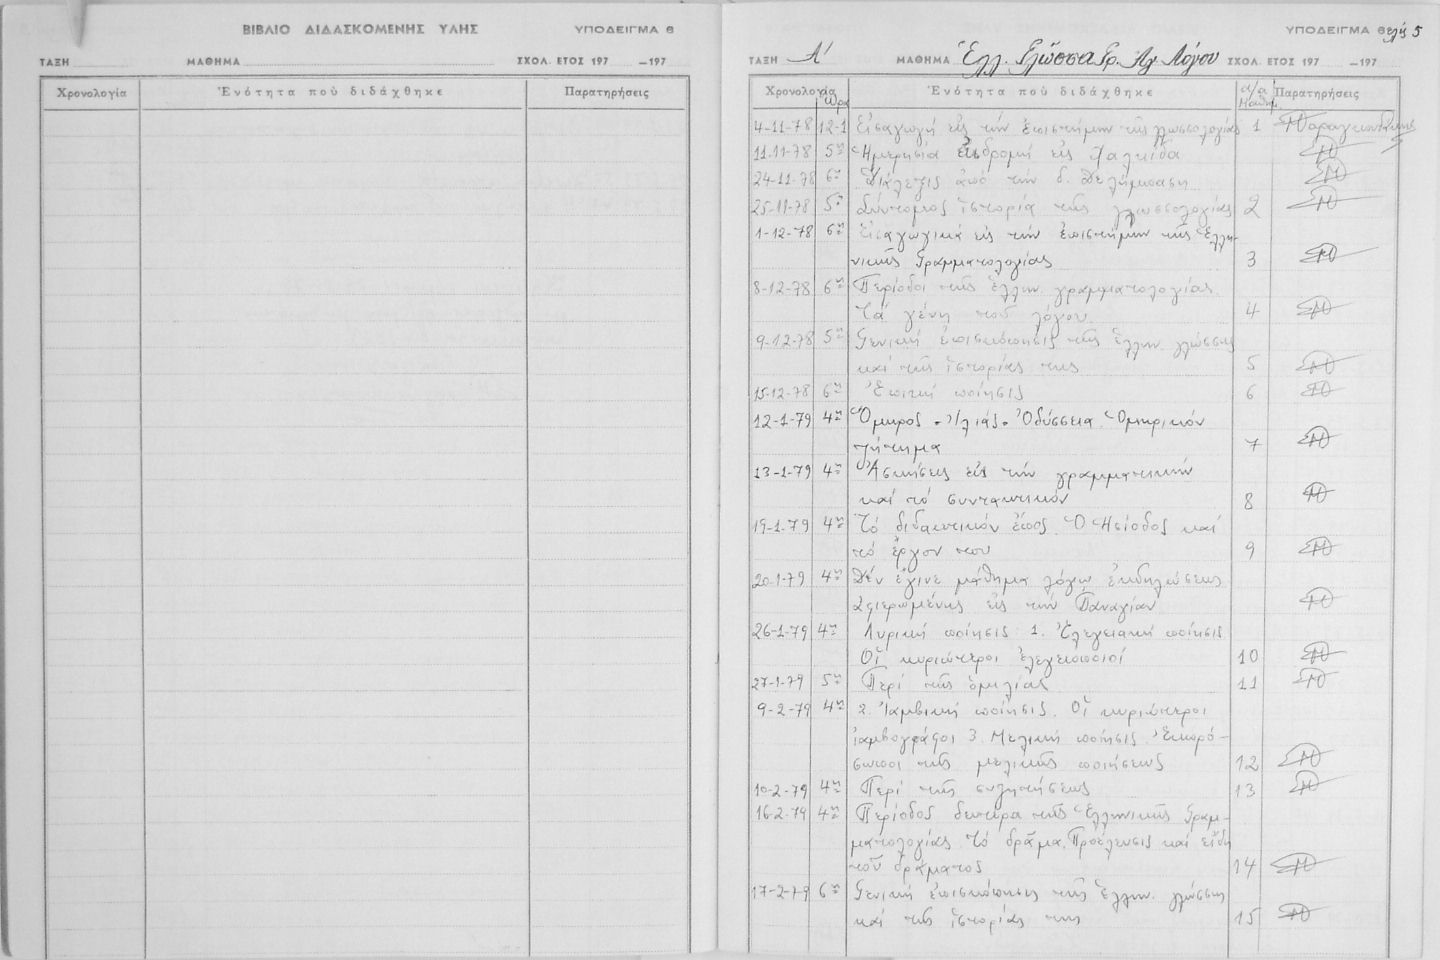 ΒΙΒΛΙΟ ΔΙΔΑΣΚΟΜΕΝΗΣ ΥΛΗΣ ΥΠΟΔΕΙΓΜΑ 6
ΤΑΞΗ ΜΑΘΗΜΑ ΣΧΟΛ. ΕΤΟΣ 197 —197
Χρονολογία Ἑνότητα ποὺ διδάχθηκε Παρατηρήσεις
ΥΠΟΔΕΙΓΜΑ 6 σελίς 5
ΤΑΞΗ Α' ΜΑΘΗΜΑ Ἑλλ. Γλῶσσα Λόγου ΣΧΟΛ. ΕΤΟΣ 197 —197
Χρονολογία Ὥρα Ἑνότητα ποὺ διδάχθηκε α/α Μαθημ. Παρατηρήσεις
4-11-78 12-1 Εἰσαγωγή εἰς τήν ἐπιστήμην τῆς γλωσσολογίας 1
11-11-78 5η Ἡμερησία ἐκδρομή εἰς Χαλκίδα
24-11-78 6η Διάλεξις ἀπό τήν δ.
25-11-78 5η Σύντομος ἱστορία τῆς γλωσσολογίας 2
1-12-78 6η Εἰσαγωγικά εἰς τήν ἐπιστήμην τῆς Ἑλλη-
νικῆς Γραμματολογίας 3
8-12-78 6η Περίοδοι τῆς ἑλλην. γραμματολογίας.
Τά γένη τοῦ λόγου. 4
9-12-78 5η Γενική ἐπισκόπησις τῆς ἑλλην. γλώσσης
καί τῆς ἱστορίας της 5
15-12-78 6η Ἐπική ποίησις 6
12-1-79 4η Ὅμηρος - Ἰλιάς - Ὀδύσσεια. Ὁμηρικόν
ζήτημα 7
13-1-79 4η Ἀσκήσεις εἰς τήν γραμματικήν
καί τό συντακτικόν 8
19-1-79 4η Τό διδακτικόν ἔπος. Ὁ Ἡσίοδος καί
τό ἔργον του 9
20-1-79 4η Δέν ἔγινε μάθημα λόγω ἐκδηλώσεως
ἀφιερωμένης εἰς τήν Παναγίαν
26-1-79 4η Λυρική ποίησις 1. Ἐλεγειακή ποίησις
Οἱ κυριώτεροι ἐλεγειοποιοί 10
27-1-79 5η Περί τῆς ὁμιλίας 11
9-2-79 4η 2. Ἰαμβική ποίησις. Οἱ κυριώτεροι
ἰαμβογράφοι 3. Μελική ποίησις. Ἐκπρό-
σωποι τῆς μελικῆς ποιήσεως 12
10-2-79 4η Περί τῆς συζητήσεως 13
16-2-79 4η Περίοδος δευτέρα τῆς Ἑλληνικῆς Γραμ-
ματολογίας. Τό δρᾶμα. Προέλευσις καί εἴδη
τοῦ δράματος 14
17-2-79 6η Γενική ἐπισκόπησις τῆς ἑλλην. γλώσσης
καί τῆς ἱστορίας της 15